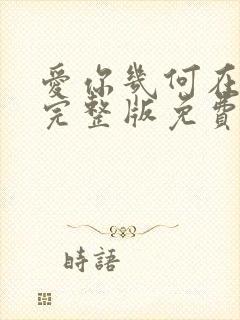 愛你幾何在
完整版免費
時語